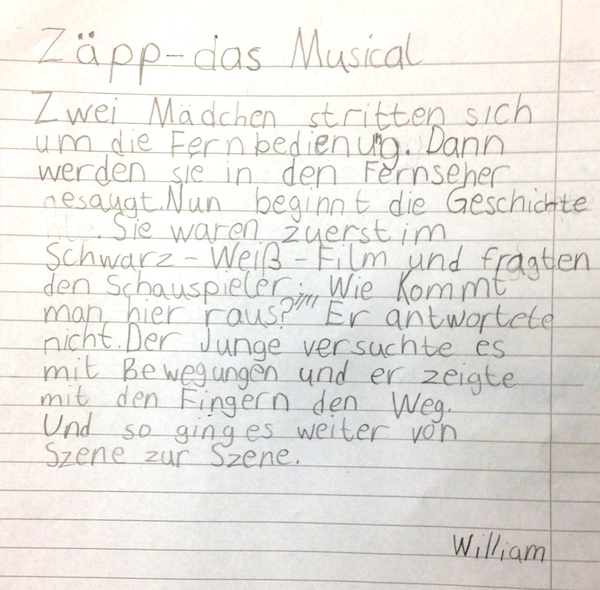 Zäpp-das Musical
Zwei Mädchen stritten sich
um die Fernbedienung. Dann
werden sie in den Fernseher
gesaugt. Nun beginnt die Geschichte
. Sie waren zuerst im
Schwarz-Weiß-Film und fragten
den Schauspieler: Wie kommt
man hier raus?" Er antwortete
nicht. Der Junge versuchte es
mit Bewegungen und er zeigte
mit den Fingern den Weg.
Und so ging es weiter von
Szene zur Szene.
William